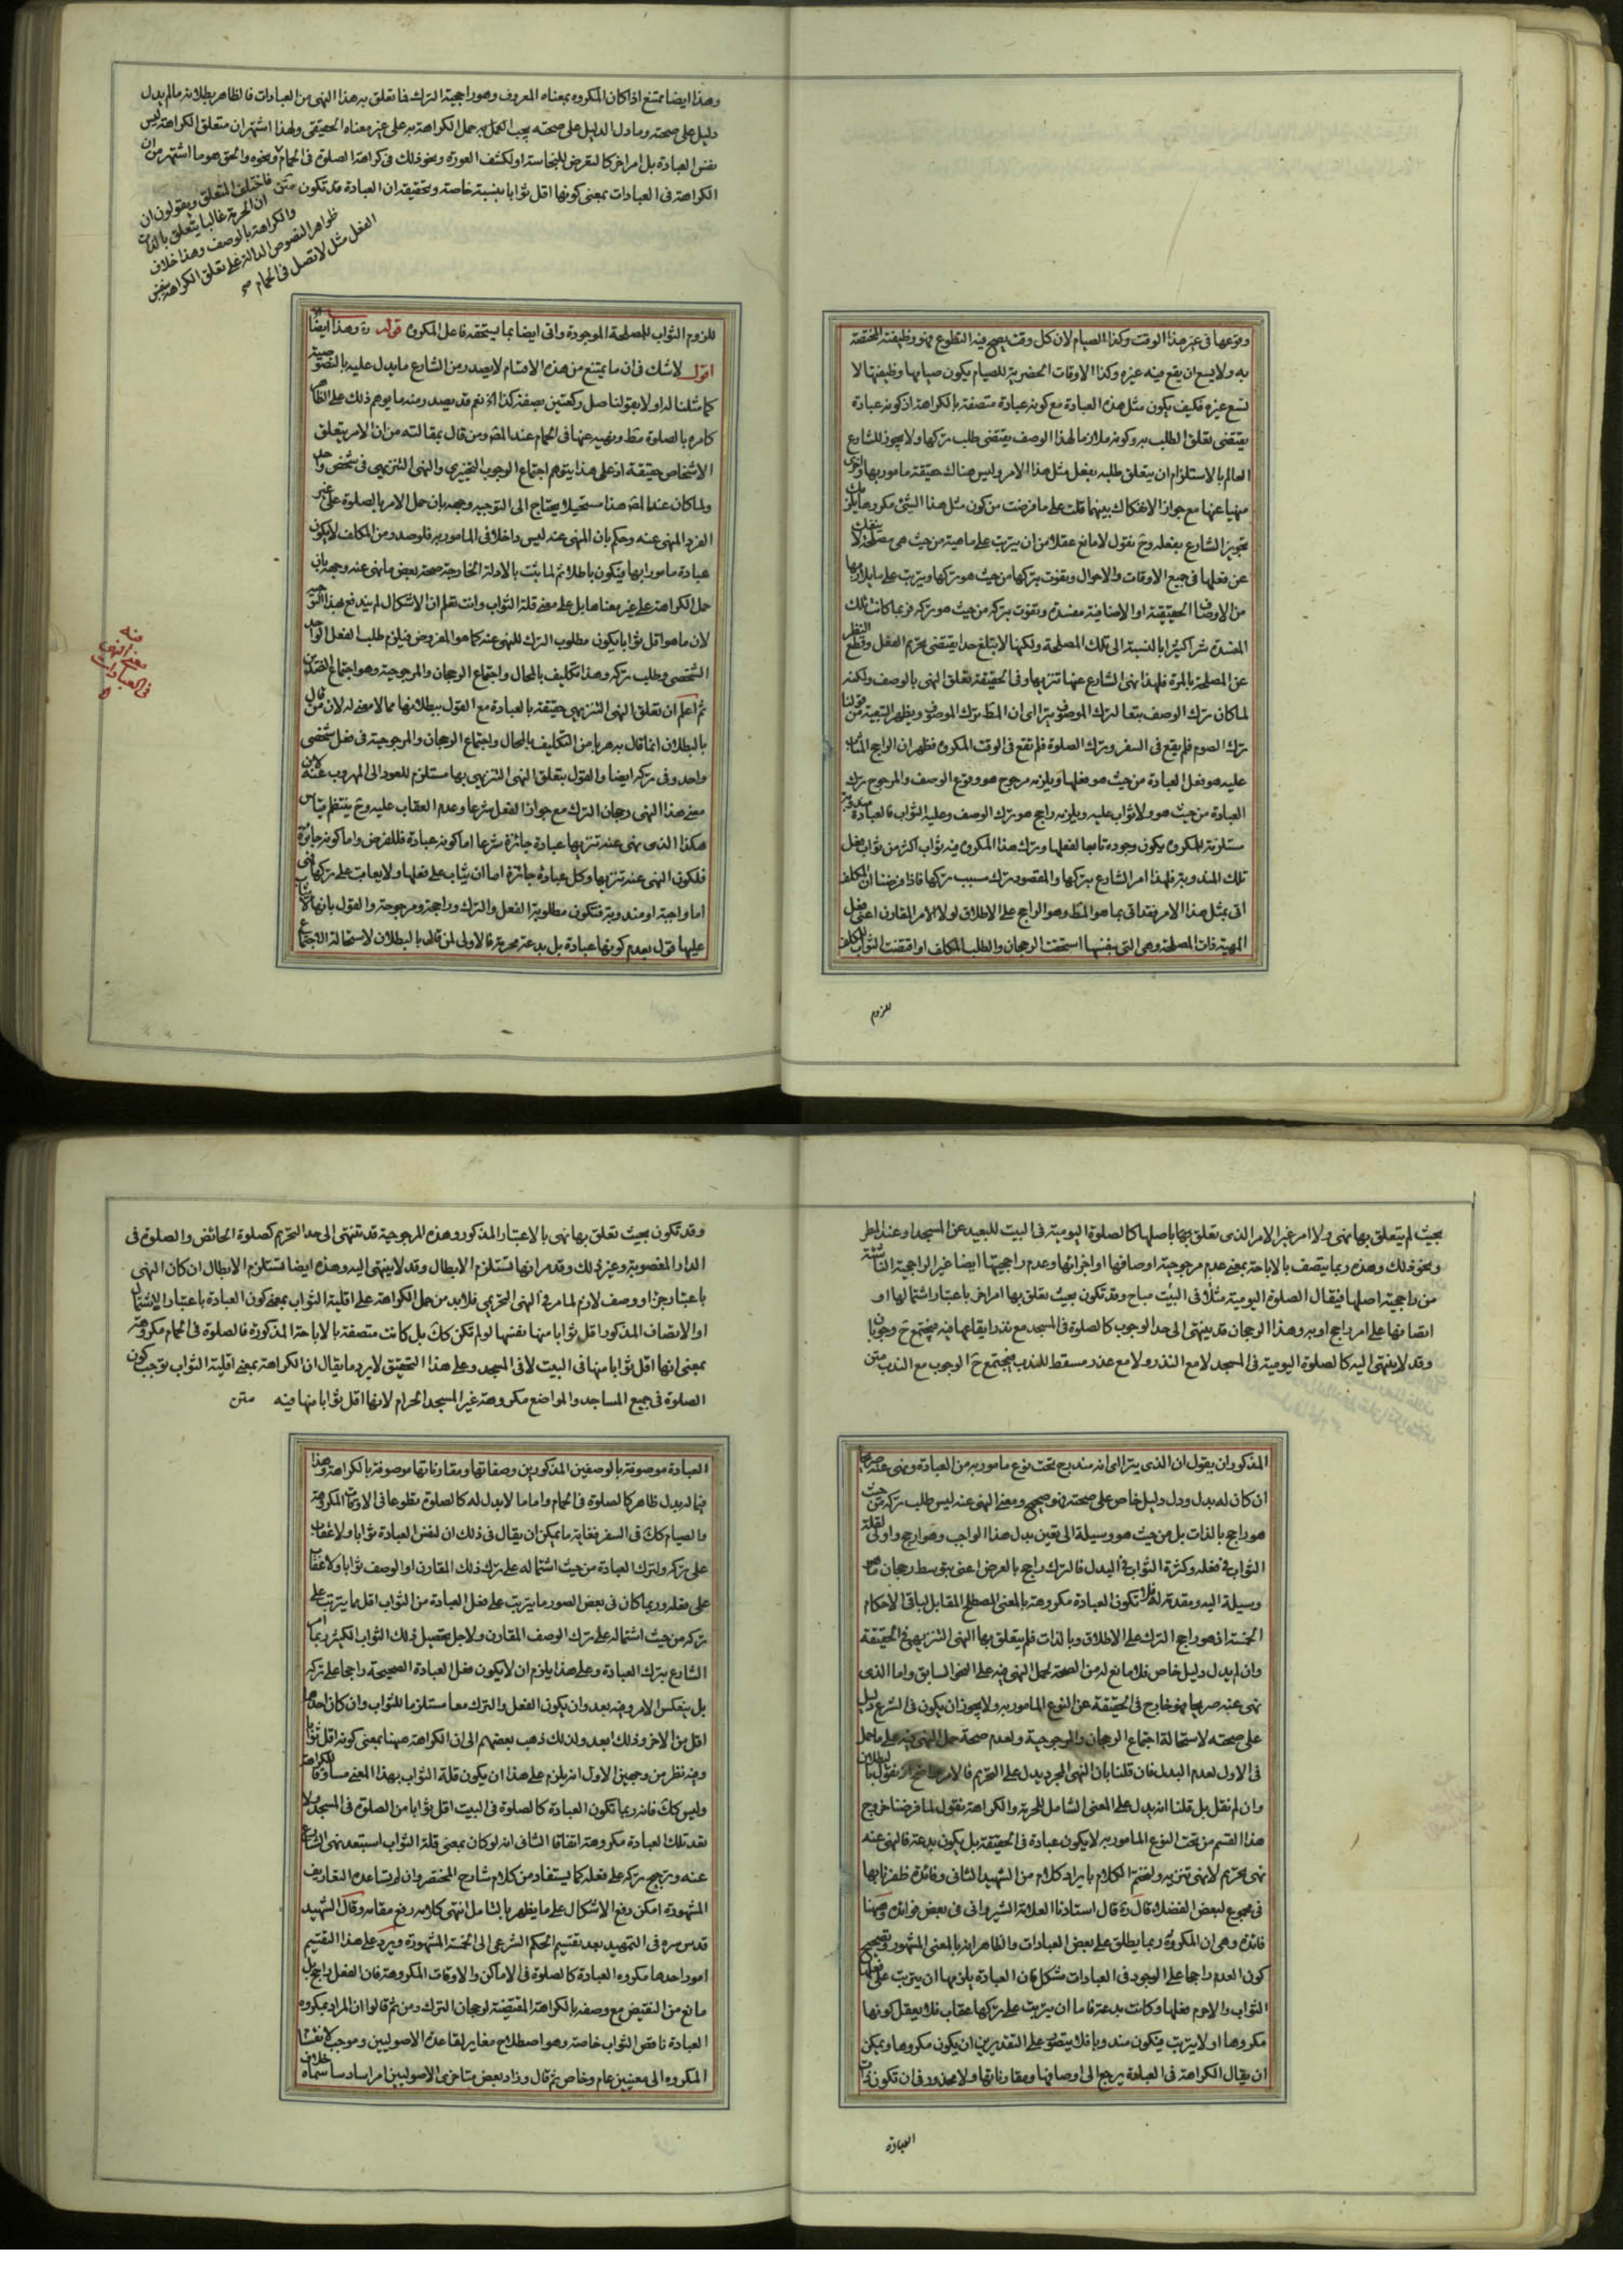 وقوعها فى غير هذا الوقت وكذا الصيام لان كل وقت يصح فيه التطوع فهو وظيفته المختصة
به ولا يسع ان يقع فيه غيره وكذا الاوقات الحضرية للصيام يكون صيامها وظيفتها لا
تسع غيره فكيف يكون مثل هذه العبادة مع كونه عبادة متصفة بالكراهة اذ كونه عبادة
يقتضى تعلق الطلب به وكونه ملازما لهذا الوصف يقتضى طلب تركها ولا يجوز للشارع
العالم بالاستلزام ان يتعلق طلبه بفعل مثل هذا الامر وليس هناك حقيقة مامور بها واخرى
منهيا عنها مع جواز الانفكاك بينهما قلت على ما فرضت من كون مثل هذا الشئ مكروها يلزمك
تجويز الشارع بفعله وح نقول لا مانع عقلا من ان يترتب على ماهية من حيث هى مصلحة لا ينفك
عن فعلها فى جميع الاوقات والاحوال ويفوت بتركها من حيث هو تركها ويترتب على ما يلازمها
من الاوصاف الحقيقية او الاضافية مفسدة ويفوت بتركه من حيث هو تركه فربما كانت تلك
المفسدة شرا كثيرا بالنسبة الى تلك المصلحة ولكنها لا يبلغ حدا يقتضى تحريم الفعل وقطع النظر
عن المصلحة بالمرة فلهذا نهى الشارع عنها تنزيها وفى الحقيقة تعلق النهى بالوصف ولكنه
لما كان ترك الوصف بتعا لترك الموصوف يترا اى ان المط ترك الموصوف ويظهر التبعية من قولنا
ترك الصوم فلم يقع فى السفر وبترك الصلوة فلم تقع فى الوقت المكروه فظهر ان الراجح المثاب
عليه هو فعل العبادة من حيث هو فعلها ويلزمه مرجوح هو وقوع الوصف والمرجوح ترك
العبادة من حيث هو ولا ثواب عليه ويلزمه راجح هو ترك الوصف وعليه الثواب فالعبادة مندوبة
مستلزمة للمكروه يكون وجوده تابعا لفعلها وترك هذا المكروه فيه ثواب اكثر من ثواب فعل
تلك المندوبة فلهذا امر الشارع بتركها والمقصود ترك سبب تركها فاذا فرضنا ان المكلف
اتى بمثل هذا الامر فقد اتى بما هو المط وهو الراجح على الاطلاق لولا الامر المقارن اعنى فعل
المهية ذات المصلحة وهى التى بنفسها استحقت الرجحان والطلب للمكلف او اقتضت الثواب للمكلف
للزوم
وهذا ايضا ممتنع اذا كان المكروه بمعناه المعروف وهو راجحية الترك فما تعلق به هذا النهى من العبادات فالظاهر بطلانه ما لم يدل
دليل على صحته وما دل الدليل على صحته يجب القول به حمل الكراهة به على غير معناه الحقيقى ولهذا اشتهر ان متعلق الكراهة ليس
نفس العبادة بل امر اخر كالتعرض للنجاسة او لكشف العورة ونحو ذلك فى كراهة الصلوة فى الحمام ونحوه والحق هو ما اشتهر من ان
الكراهة فى العبادات بمعنى كونها اقل ثوابا بنسبة خاصة وتحقيقه ان العبادة قد تكون متن
فاختلف المتعلق ويقولون ان
ان الحرمة غالبا يتعلق بالذات
والكراهة بالوصف وهذا خلاف
ظواهر النصوص الدالة على تعلق الكراهة بنفس
الفعل مثل لا تصل فى الحمام
للزوم الثواب للمصلحة الموجودة واتى ايضا بما يستحقه فاعل المكروه قوله ره وهذا ايضا
اقول لاشك فى ان ما يمتنع من هذه الاقسام لا يصدر من الشارع ما يدل عليه بالنصوصية
كما مثلنا له او لا بقولنا صل ركعتين بصفة كذا الخ نعم قد يصدر منه ما يوهم ذلك على الظاهر
كامره بالصلوة مط ونهيه عنها فى الحمام عند المص ومن قال بمقالته من ان الامر يتعلق
الاشخاص حقيقة اذ على هذا يتوهم اجتماع الوجوب التخييرى والنهى التنزيهى فى شخص واحد
ولما كان عند المص هذا مستحيلا يحتاج الى التوجيه وجهه بان حمل الامر بالصلوة على غير
الفرد المنهى عنه وحكم بان المنهى عنه ليس داخلا فى المامور به فلو صدر من المكلف لا يكون
عبادة مامورا بها ويكون باطلا ثم لما ثبت بالادلة الخارجة صحة بعض ما نهى عنه وجهه بان
حمل الكراهة على غير معناها بل على معنى قلة الثواب وانت تعلم ان الاشكال لم يندفع بهذا التوجيه
لان ما هو اقل ثوابا يكون مطلوب الترك للنهى عنه كما هو المفروض فيلزم طلب الفعل الواحد
الشخصى وطلب تركه وهذا تكليف بالمحال واجتماع الرجحان والمرجوحية وهو اجتماع الضدين
ثم اعلم ان تعلق النهى التنزيهى حقيقة بالعبادة مع القول ببطلانها مما لا معنى له لان من قال
بالبطلان انما قال به هربا من التكليف بالمحال واجتماع الرجحان والمرجوحية فى فعل شخصى
واحد وفى تركه ايضا والقول بتعلق النهى التنزيهى بها مستلزم للعود الى المهروب عنه لان
معنى هذا النهى رجحان الترك مع جواز الفعل شرعا وعدم العقاب عليه وح ينتظم قياس
هكذا الذى نهى عنه تنزيها عبادة جائزة شرعا اما كونه عبادة فللفرض واما كونه جائزة
فلكون النهى عنه تنزيها وكل عبادة جائزة اما ان يثاب على فعلها ولا يعاقب على تركها فهى
اما واجبة او مندوبة فتكون مطلوبة الفعل والترك وراجحة ومرجوحة والقول بانها لا يثاب
عليها قول بعدم كونها عبادة بل بدعة محرمة فالاولى لمن قال بالبطلان لاستحالة الاجتماع
فى العبادات
بحيث لم يتعلق بها نهى ولا امر غير الامر الذى تعلق بها باصلها كالصلوة اليومية فى البيت للبعيد عن المسجد او عند المطر
ونحو ذلك وهذه ربما يتصف بالاباحة بمعنى عدم مرجوحية اوصافها او اجزائها وعدم راجحيتها ايضا غير الراجحية الناشئة
من راجحية اصلها فيقال الصلوة اليومية مثلا فى البيت مباح وقد تكون بحيث تعلق بها امر اخر باعتبار اشتمالها او
اتصافها على امر راجح او به وهذا الرجحان قد ينتهى الى حد الوجوب كالصلوة فى المسجد مع نذر ايقاعها فيه فيجتمع ح وجوبان
وقد لا ينتهى اليه كالصلوة اليومية فى المسجد لا مع النذر ولا مع عذر مسقط للندب فيجتمع ح الوجوب مع الندب متن
المذكور ان يقول ان الذى يترا اى انه مندرج تحت نوع مامور به من العبادة ونهى عنه صريحا
ان كان له بدل ودل دليل خاص على صحته فهو صحيح ومعنى النهى عنه ليس طلب تركه من حيث
هو راجح بالذات بل من حيث هو وسيلة الى تعين بدل هذا الواجب وهو ارجح واولى لقلة
الثواب فى فعله وكثرة الثواب فى البدل فالترك راجح بالعرض اعنى بتوسط رجحان ما هو
وسيلة اليه ومقدمة له فلا تكون العبادة مكروهة بالمعنى المصطلح المقابل لباقى الاحكام
الخمسة اذ هو راجح الترك على الاطلاق وبالذات فلم يتعلق بها النهى التنزيهى فى الحقيقة
وان لم يدل دليل خاص فلا مانع له من الصحة لحمل النهى فيه على النحو السابق واما الذى
نهى عنه صريحا فهو خارج فى الحقيقة عن النوع المامور به ولا يجوز ان يكون فى الشرع دليل
على صحته لاستحالة اجتماع الرجحان والمرجوحية ولعدم صحة حمل النهى فيه على ما حمل
فى الاول لعدم البدل فان قلنا بان النهى المجرد يدل على التحريم فالامر واضح اذ نقول بالبطلان
وان لم نقل بل قلنا انه يدل على المعنى الشامل للحرمة والكراهة نقول لما فرضنا خروج
هذا القسم من تحت النوع المامور به لا يكون عبادة فى الحقيقة بل يكون بدعة فالنهى عنه
نهى تحريم لا نهى تنزيه ولنختم الكلام بايراد كلام من الشهيد الثانى وفائدة ظفرنا بها
فى مجموع لبعض الفضلاء قال ره قال استاذنا العلامة الشيروانى فى بعض فوائده وههنا
فائدة وهى ان المكروه ربما يطلق على بعض العبادات والظاهر انه بالمعنى المشهور وتصحيح
كون العدم راجحا على الوجود فى العبادات مشكل فان العبادة يلزمها ان يترتب على فعلها
الثواب والا حرم فعلها وكانت بدعة فاما ان يترتب على تركها عقاب فلا يعقل كونها
مكروها او لا يترتب فيكون مندوبا فلا يتصور على التقديرين ان يكون مكروها ويمكن
ان يقال الكراهة فى العبادة يرجع الى اوصافها ومقارناتها ولا محذور فى ان تكون ذات
العبادة
وقد تكون بحيث تعلق بها نهى بالاعتبار المذكور وهذه المرجوحية قد تنتهى الى حد التحريم كصلوة الحائض والصلوة فى
الدار المغصوبة وغير ذلك وقد مر انها تستلزم الابطال وقد لا ينتهى اليه وهذه ايضا تستلزم الابطال ان كان النهى
باعتبار جزء او وصف لازم لما مر فى النهى التحريمى فلا بد من حمل الكراهة على اقلية الثواب بمعنى كون العبادة باعتبار الاشتمال
او الاتصاف المذكور اقل ثوابا منها نفسها لو لم تكن كك بل كانت متصفة بالاباحة المذكورة فالصلوة فى الحمام مكروهة
بمعنى انها اقل ثوابا منها فى البيت لا فى المسجد وعلى هذا التحقيق لا يرد ما يقال ان الكراهة بمعنى اقلية الثواب توجب كون
الصلوة فى جميع المساجد والمواضع مكروهة غير المسجد الحرام لانها اقل ثوابا منها فيه متن
العبادة موصوفة بالوصفين المذكورين وصفاتها ومقارناتها موصوفة بالكراهة وهذا
فيما له بدل ظاهر كالصلوة فى الحمام واما ما لا بدل له كالصلوة تطوعا فى الاوقات المكروهة
والصيام كك فى السفر فغاية ما يمكن ان يقال فى ذلك ان لنفس العبادة ثوابا ولا عقاب
على تركه ولترك العبادة من حيث اشتماله على ترك ذلك المقارن او الوصف ثوابا ولا عقاب
على فعله وربما كان فى بعض الصور ما يترتب على فعل العبادة من الثواب اقل ما يترتب على
تركه من حيث اشتماله على ترك الوصف المقارن ولاجل تحصيل ذلك الثواب الكثير ربما امر
الشارع بترك العبادة وعلى هذا يلزم ان لا يكون فعل العبادة الصحيحة راجحا على تركه
بل ينعكس الامر وفيه بعد وان يكون الفعل والترك معا مستلزما للثواب وان كان احدهما
اقل من الاخر وذلك ابعد ولذلك ذهب بعضهم الى ان الكراهة ههنا بمعنى كونه اقل ثوابا
وفيه نظر من وجهين الاول انه يلزم على هذا ان يكون قلة الثواب بهذا المعنى مساوقا للكراهة
وليس كك فانه ربما تكون العبادة كالصلوة فى البيت اقل ثوابا من الصلوة فى المسجد ولا
تعد تلك العبادة مكروهة اتفاقا الثانى انه لو كان بمعنى قلة الثواب استبعد نهى الشارع
عنه وترجيح تركه على فعله كما يستفاد من كلام شارح المختصر وان لم يساعده التعاريف
المشهورة امكن دفع الاشكال على ما يظهر بالتامل انتهى كلامه رفع مقامه وقال الشهيد
قدس سره فى التمهيد بعد تقسيم الحكم الشرعى الى الخمسة المشهورة ويرد على هذا التقسيم
امور احدها مكروه العبادة كالصلوة فى الاماكن والاوقات المكروهة فان الفعل راجح بل
مانع من النقيض مع وصفه بالكراهة المقتضية لرجحان الترك ومن ثم قالوا ان المراد بمكروه
العبادة ناقص الثواب خاصة وهو اصطلاح مغاير لقاعدة الاصوليين وموجب لانقسام
المكروه الى معنيين عام وخاص ثم قال وزاد بعض متاخرى الاصوليين امرا سادسا سماه خلاف